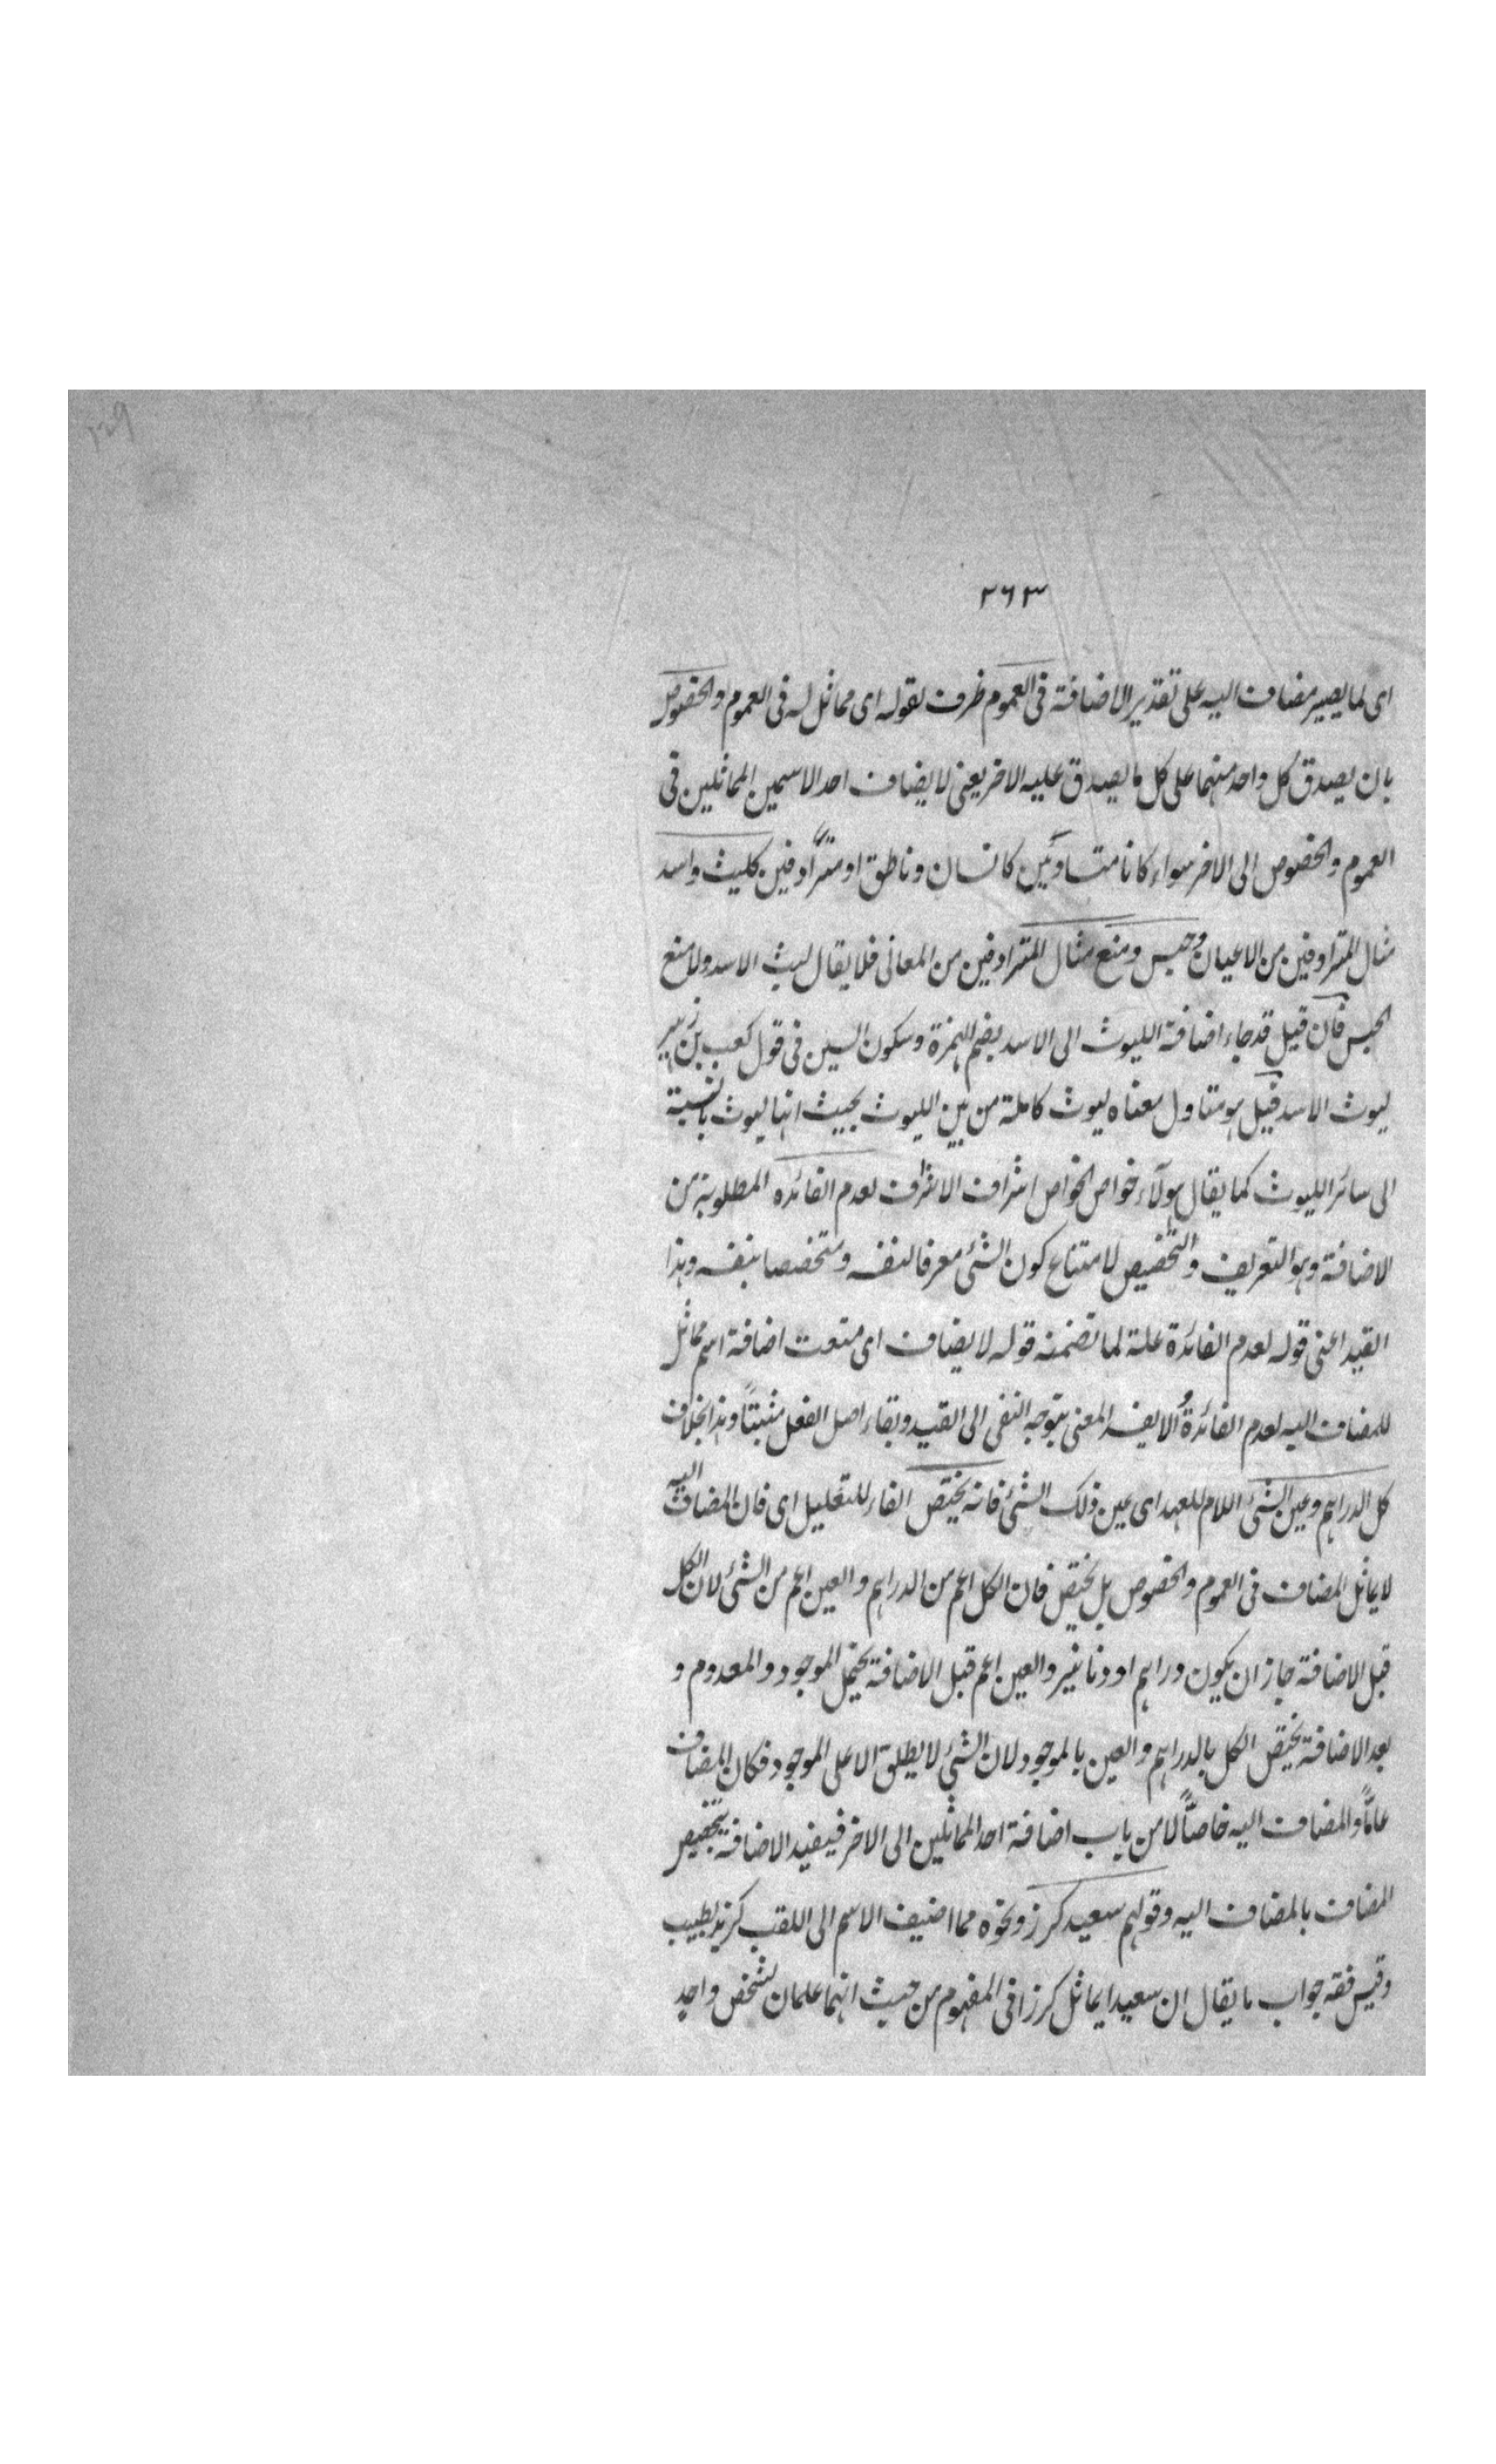 ٢٦٣
اى لما يصير مضاف اليه على تقدير الاضافة فى العموم ظرف لقوله اى مماثل له فى العموم والخصوص
بان يصدق كل واحد منهما على كل ما يصدق عليه الاخر يعنى لا يضاف احد الاسمين المماثلين فى
العموم والخصوص الى الاخر سواء كانا متساويين كانسان وناطق او مترادفين كليث واسد
مثال المترادفين من الاعيان وحبس ومنع مثال المترادفين من المعانى فلا يقال ليث الاسد ولا منع
الحبس فان قيل قد جاء اضافة الليوث الى الاسد بضم الهمزة وسكون السين فى قول كعب بن زهير
ليوث الاسد قيل هو متاول معناه ليوث كاملة من بين الليوث بحيث انها ليوث بالنسبة
الى سائر الليوث كما يقال هولآء خواص الخواص اشراف الاشراف لعدم الفائده المطلوبة من
الاضافة وهو التعريف والتخصيص لامتناع كون الشئ معرفا لنفسه ومتخصصا بنفسه وهذا
القيد اعنى قوله لعدم الفائدة علة لما تضمنه قوله لا يضاف اى متعت اضافة اسم مماثل
للمضاف اليه لعدم الفائدة المعنى بتوجه النفى الى القيد وبقاء اصل الفعل مثبتًا وهذا بخلاف
كل الدراهم وعين الشئ اللام للعهد اى عين ذلك الشئ فانه يختص الفاء للتعليل اى فان المضاف اليه
لا يماثل المضاف فى العموم والخصوص بل يختص فان الكل اعم من الدراهم والعين اعم من الشئ لان الكل
قبل الاضافة جاز ان يكون دراهم او دنانير والعين اعم قبل الاضافة يحتمل الموجود والمعدوم و
بعد الاضافة يختص الكل بالدراهم والعين بالموجود لان الشئ لا يطلق الا على الموجود فكان المضاف
عامًّا والمضاف اليه خاصًّا لا من باب اضافة احد المماثلين الى الاخر فيفيد الاضافة تخصيص
المضاف بالمضاف اليه وقولهم سعيد كرز ونحوه مما اضيف الاسم الى اللقب كزيد بطة
وقيس قفه جواب ما يقال ان سعيدا يماثل كرزا فى المفهوم من حيث انهما علمان لشخص واحد